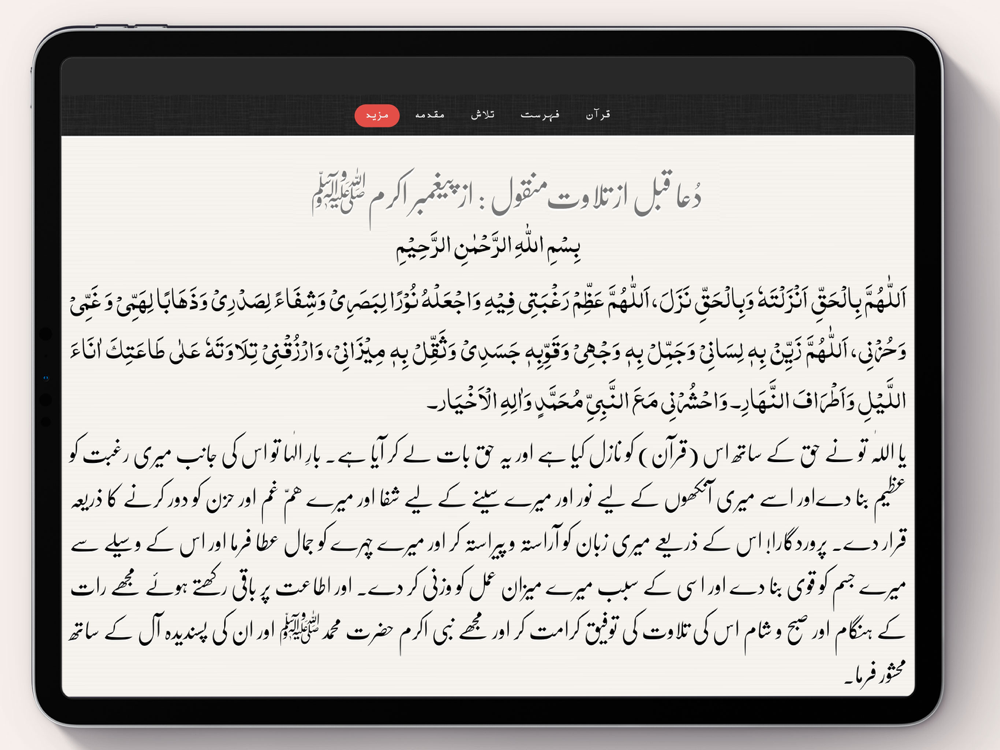 قرآن فہرست تلاش مقدمہ مزید
دُعا قبل از تلاوت منقول : از پیغمبر اکرم ﷺ
بِسْمِ اللّٰہِ الرَّحْمٰنِ الرَّحِیْمِ
اَللّٰهُمَّ بِالْحَقِّ اَنْزَلْتَهٗ وَبِالْحَقِّ نَزَلَ، اَللّٰهُمَّ عَظِّمْ رَغْبَتِی فِیْهِ وَاجْعَلْهُ نُوْرًا لِبَصَرِیْ وَشِفَاءً لِصَدْرِیْ وَذَهَابًا لِهَمِّیْ وَ غَمِّیْ
وَحُزْنِی، اَللّٰهُمَّ زَیِّنْ بِهٖ لِسَانِیْ وَجَمِّلْ بِهٖ وَجْهِیْ وَقَوِّبِهٖ جَسَدِیْ وَثَقِّلْ بِهٖ مِیْزَانِیْ، وَارْزُقْنِیْ تِلَاوَتَهٗ عَلٰی طَاعَتِكَ اٰنَاءَ
اللَّیْلِ وَاَطْرَافَ النَّهَارِ۔ وَاحْشُرْنِی مَعَ النَّبِیِّ مُحَمَّدٍ وَاٰلِهِ الْاَخْیَار۔
یا اللہ تو نے حق کے ساتھ اس (قرآن) کو نازل کیا ہے اور یہ حق بات لے کر آیا ہے۔ بارِ الٰہا تو اس کی جانب میری رغبت کو
عظیم بنا دے اور اسے میری آنکھوں کے لیے نور اور میرے سینے کے لیے شفا اور میرے ھمّ غم اور حزن کو دور کرنے کا ذریعہ
قرار دے۔ پروردگارا! اس کے ذریعے میری زبان کو آراستہ و پیراستہ کر اور میرے چہرے کو جمال عطا فرما اور اس کے وسیلے سے
میرے جسم کو قوی بنا دے اور اسی کے سبب میرے میزان عمل کو وزنی کر دے۔ اور اطاعت پر باقی رکھتے ہوئے مجھے رات
کے ہنگام اور صبح و شام اس کی تلاوت کی توفیق کرامت کر اور مجھے نبی اکرم حضرت محمد ﷺ اور ان کی پسندیدہ آل کے ساتھ
محشور فرما۔